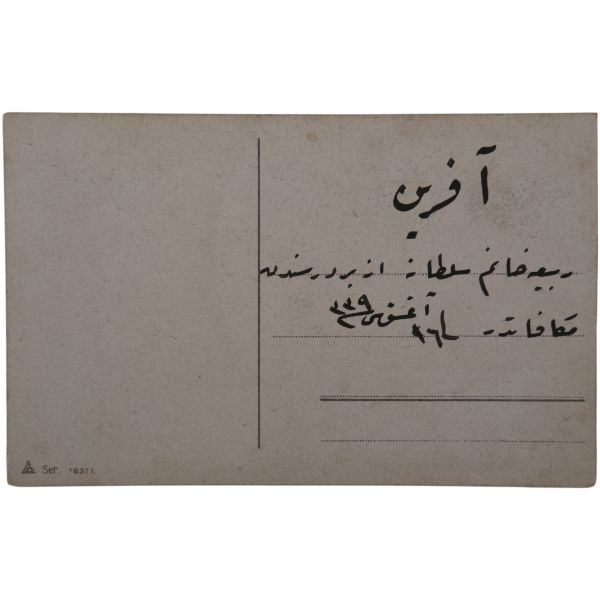 آفرین
ربیعه خانم سلطانه از بر درسندن
مكافاتدر
١٦ آغستوس ٣٣٩
Ser. 16371.